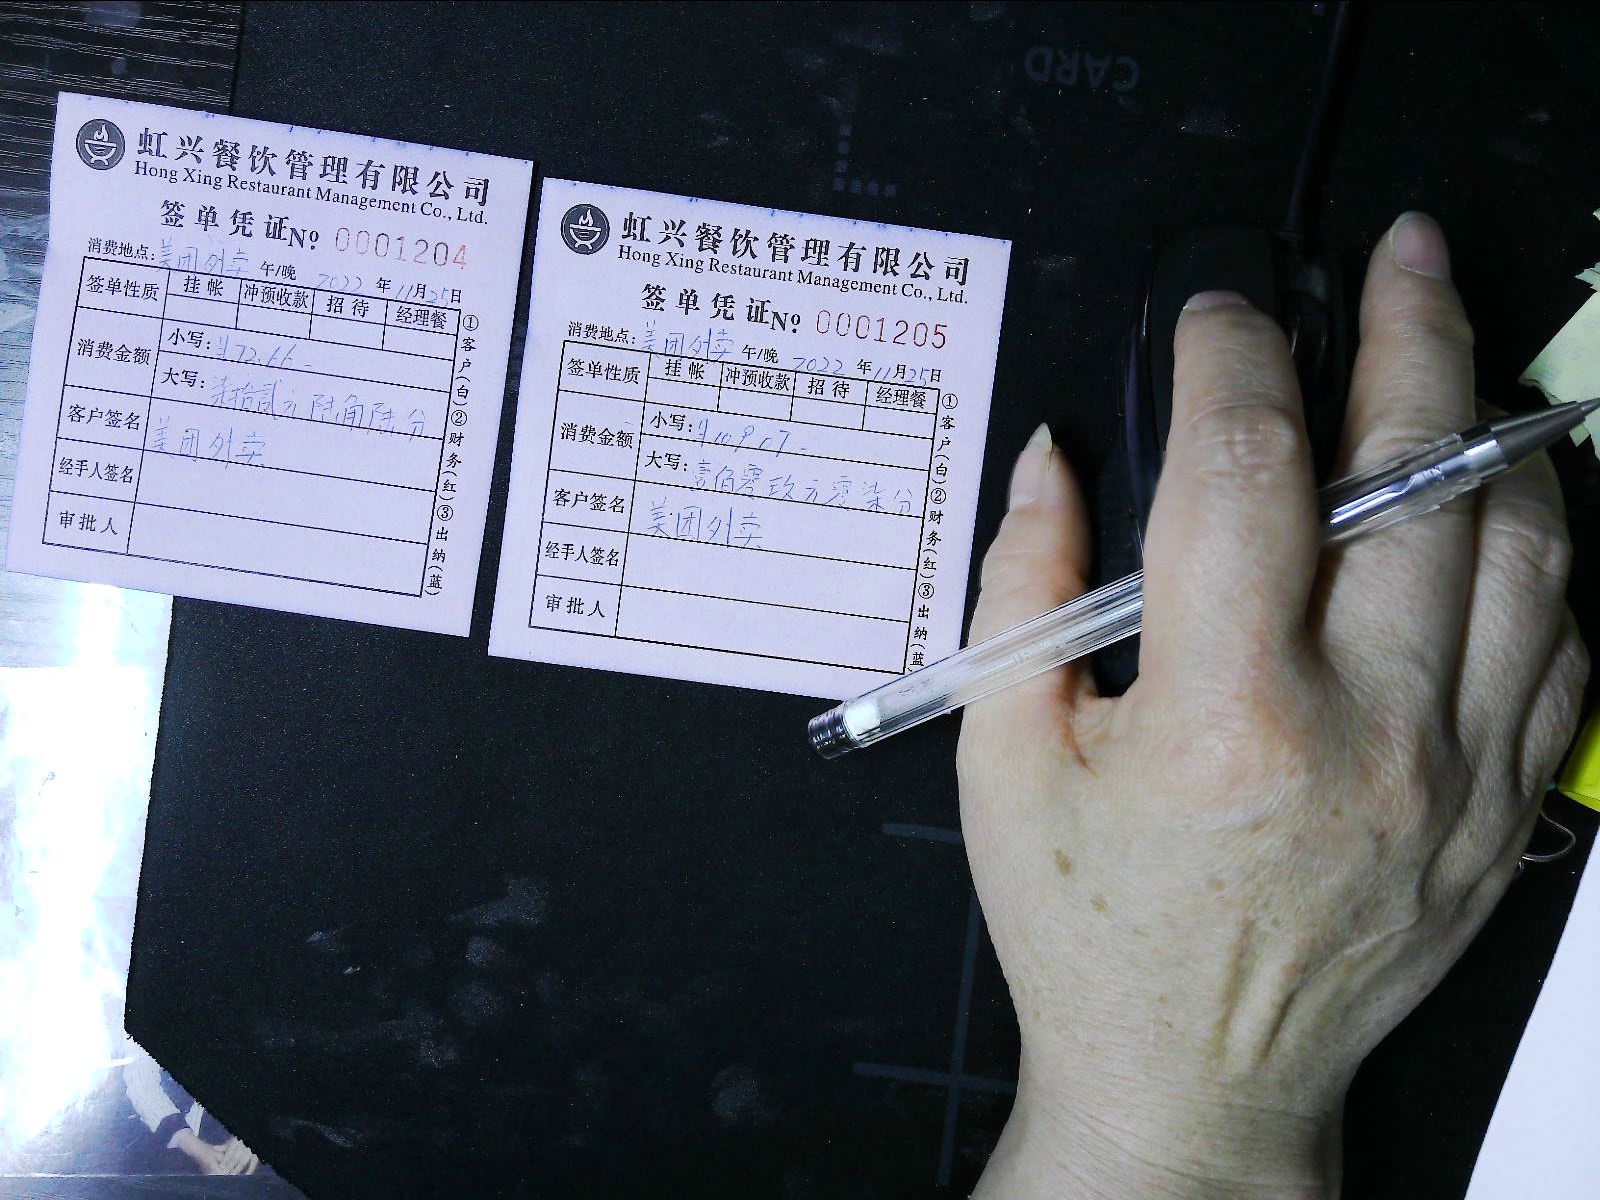 虹兴餐饮管理有限公司
Hong Xing Restaurant Management Co., Ltd.
签单凭证No 0001204
消费地点: 美团外卖 午/晚 2022 年 11月25日
签单性质 挂帐 冲预收款 招待 经理餐
消费金额 小写: ¥72.66-
大写: 柒拾贰元陆角陆分
客户签名 美团外卖
经手人签名
审批人
①客户(白)②财务(红)③出纳(蓝)
虹兴餐饮管理有限公司
Hong Xing Restaurant Management Co., Ltd.
签单凭证No 0001205
消费地点: 美团外卖 午/晚 2022 年 11月25日
签单性质 挂帐 冲预收款 招待 经理餐
消费金额 小写: ¥109.07-
大写: 壹佰零玖元零柒分
客户签名 美团外卖
经手人签名
审批人
①客户(白)②财务(红)③出纳(蓝
CARD